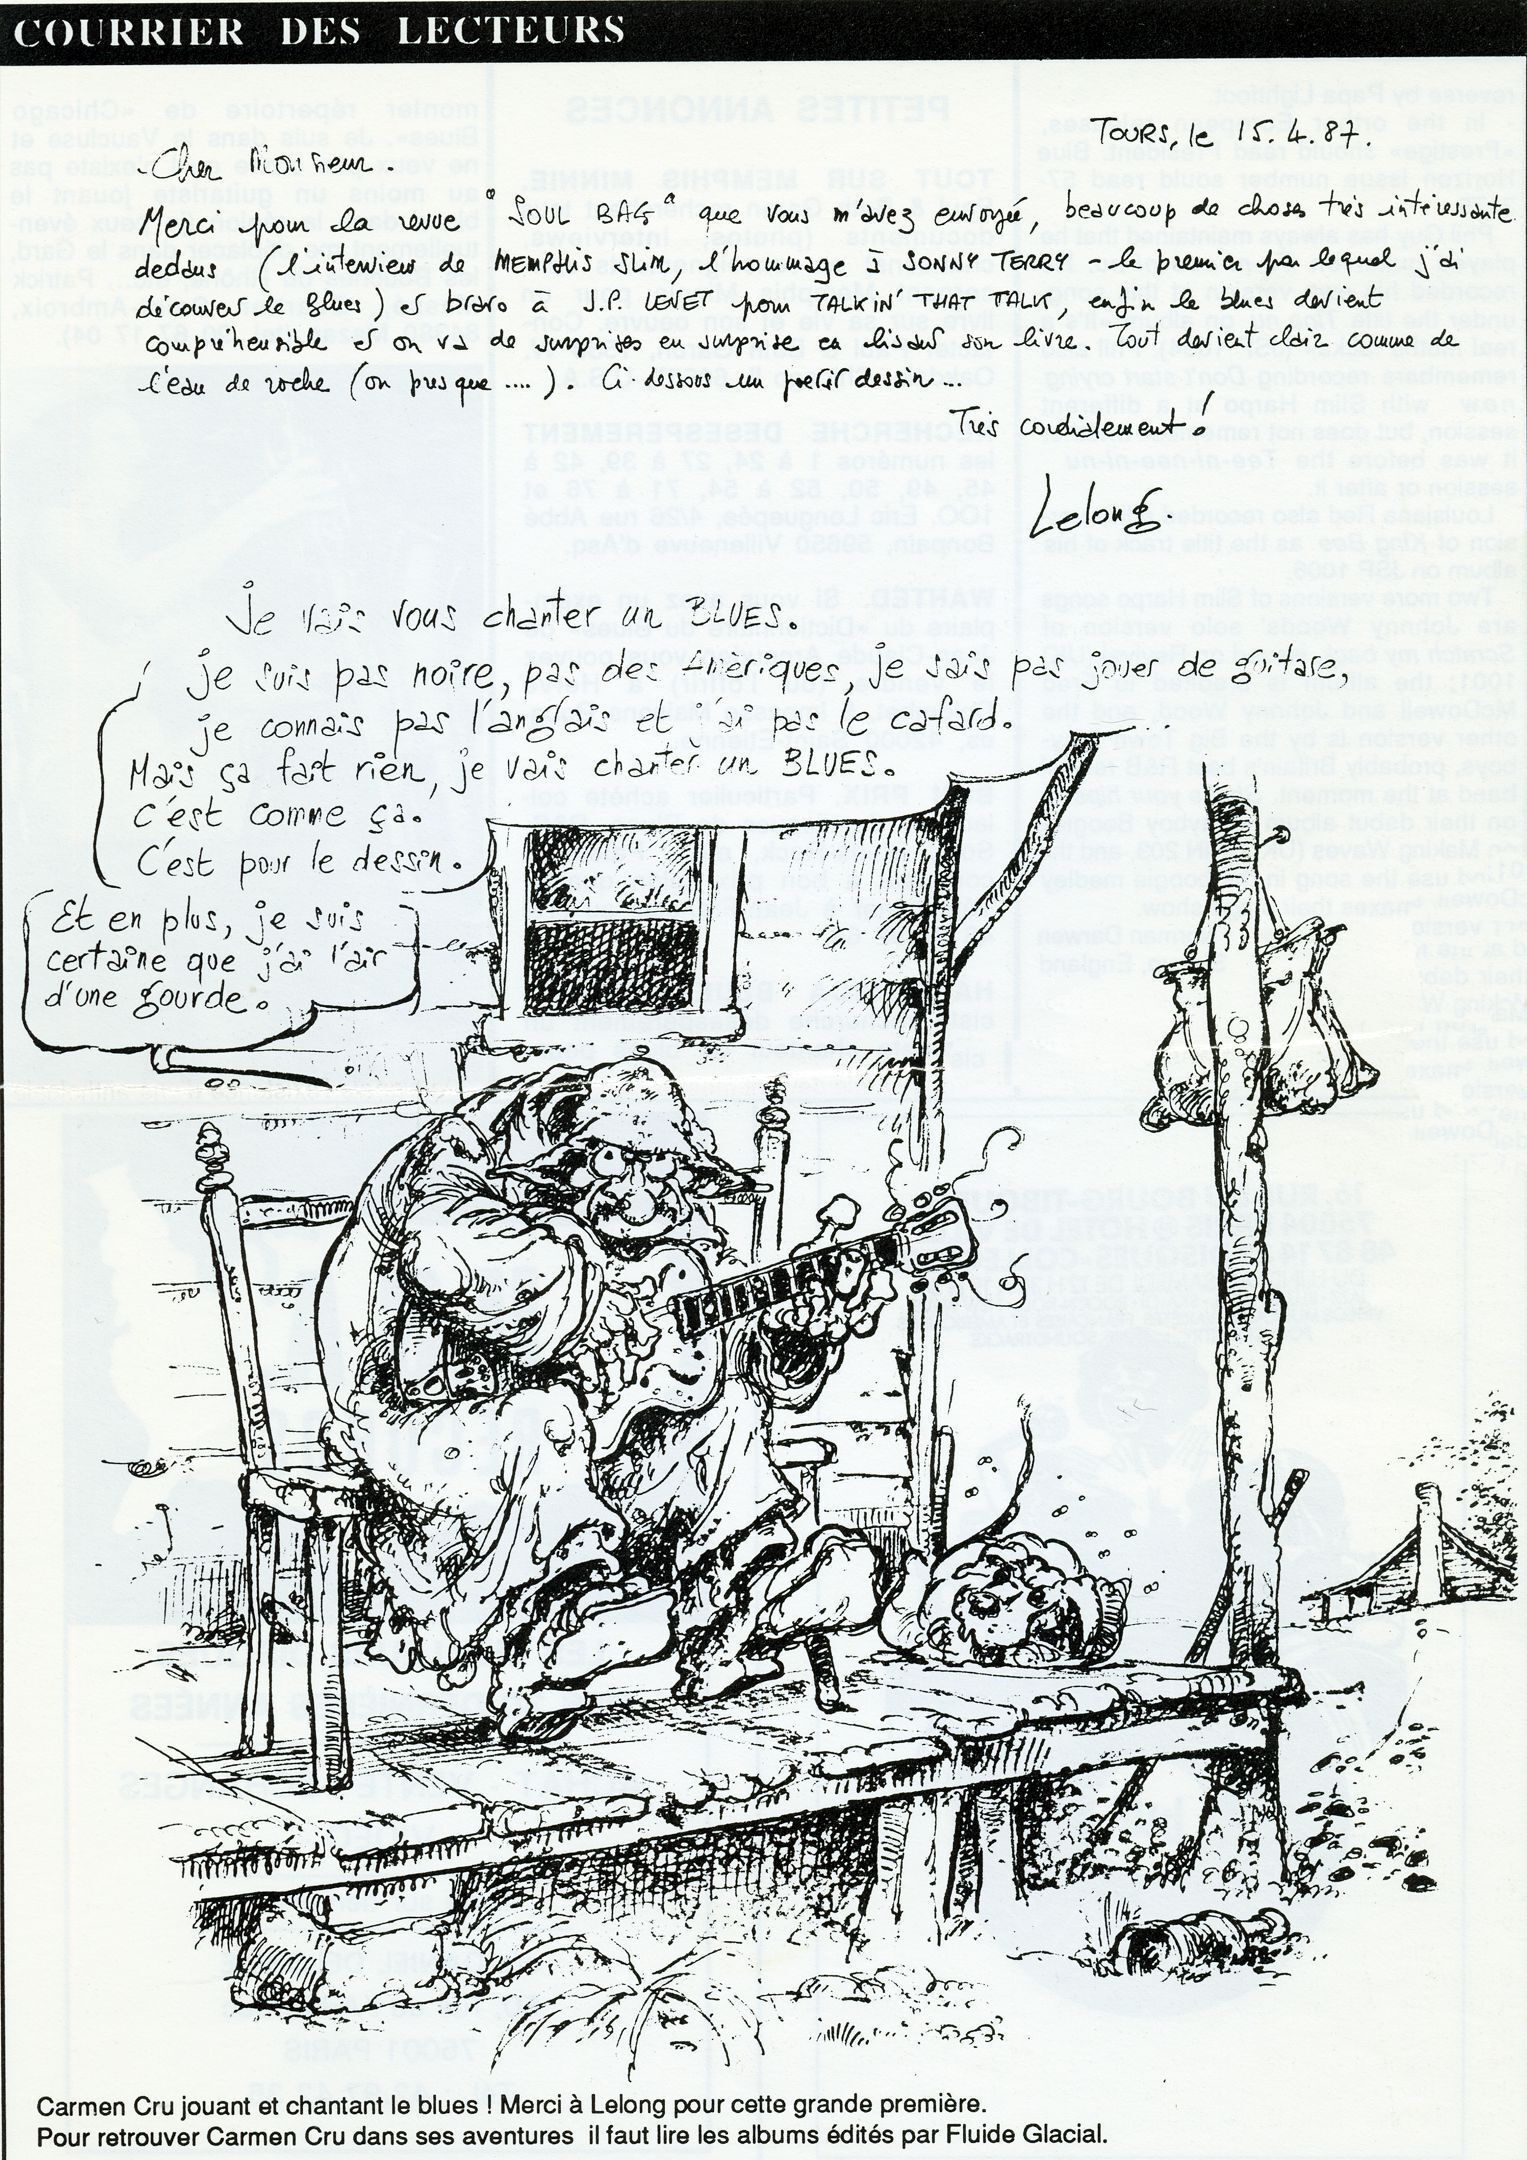 COURRIER DES LECTEURS
TOURS, le 15.4.87.
Cher Monsieur.
Merci pour la revue "SOUL BAG" que vous m'avez envoyé, beaucoup de choses très intéressante
dedans (l'interview de MEMPHIS SLIM, l'hommage à SONNY TERRY - le premier par lequel j'ai
découvert le Blues) et bravo à J.P. LEVET pour TALKIN' THAT TALK, enfin le blues devient
compréhensible et on va de surprises en surprise en lisant son livre. Tout devient clair comme de
l'eau de roche (ou presque ....). Ci-dessous un petit dessin...
Très cordialement !
Lelong.
Je vais vous chanter un BLUES.
je suis pas noire, pas des Amériques, je sais pas jouer de guitare,
je connais pas l'anglais et j'ai pas le cafard.
Mais ça fait rien, je vais chanter un BLUES.
C'est comme ça.
C'est pour le dessin.
Et en plus, je suis
certaine que j'ai l'air
d'une gourde.
Carmen Cru jouant et chantant le blues ! Merci à Lelong pour cette grande première.
Pour retrouver Carmen Cru dans ses aventures il faut lire les albums édités par Fluide Glacial.